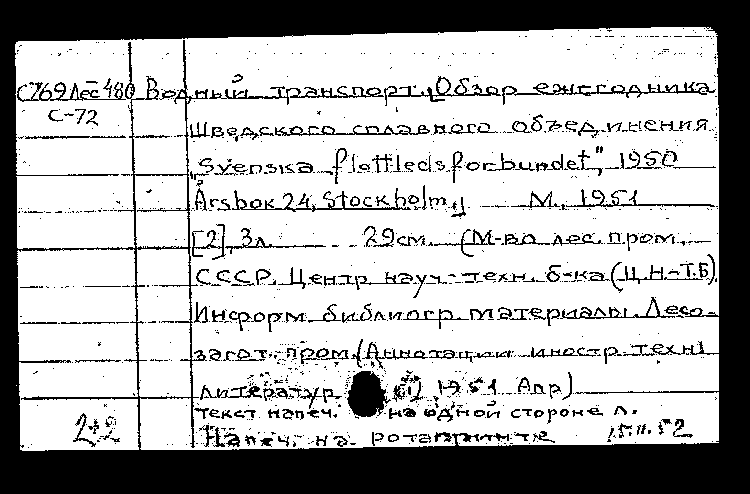 С769Лес480 Водный транспорт. (Обзор ежегодника
С-72 Шведского сплавного объединения
„Svenska flottledsforbundet", 1950
Årsbok 24, Stockholm,) М., 1951
[2], 3л. 29см. (М-во лес. пром.
СССР. Центр. науч.-техн. б-ка (Ц.Н-Т.Б).
Информ. библиогр. материалы. Лесо-
загот. пром. (Аннотации иностр. техн)
литератур 1951 Апр)
текст напеч. на одной стороне л.
2+2 Напеч. на ротапринте 15.II.52